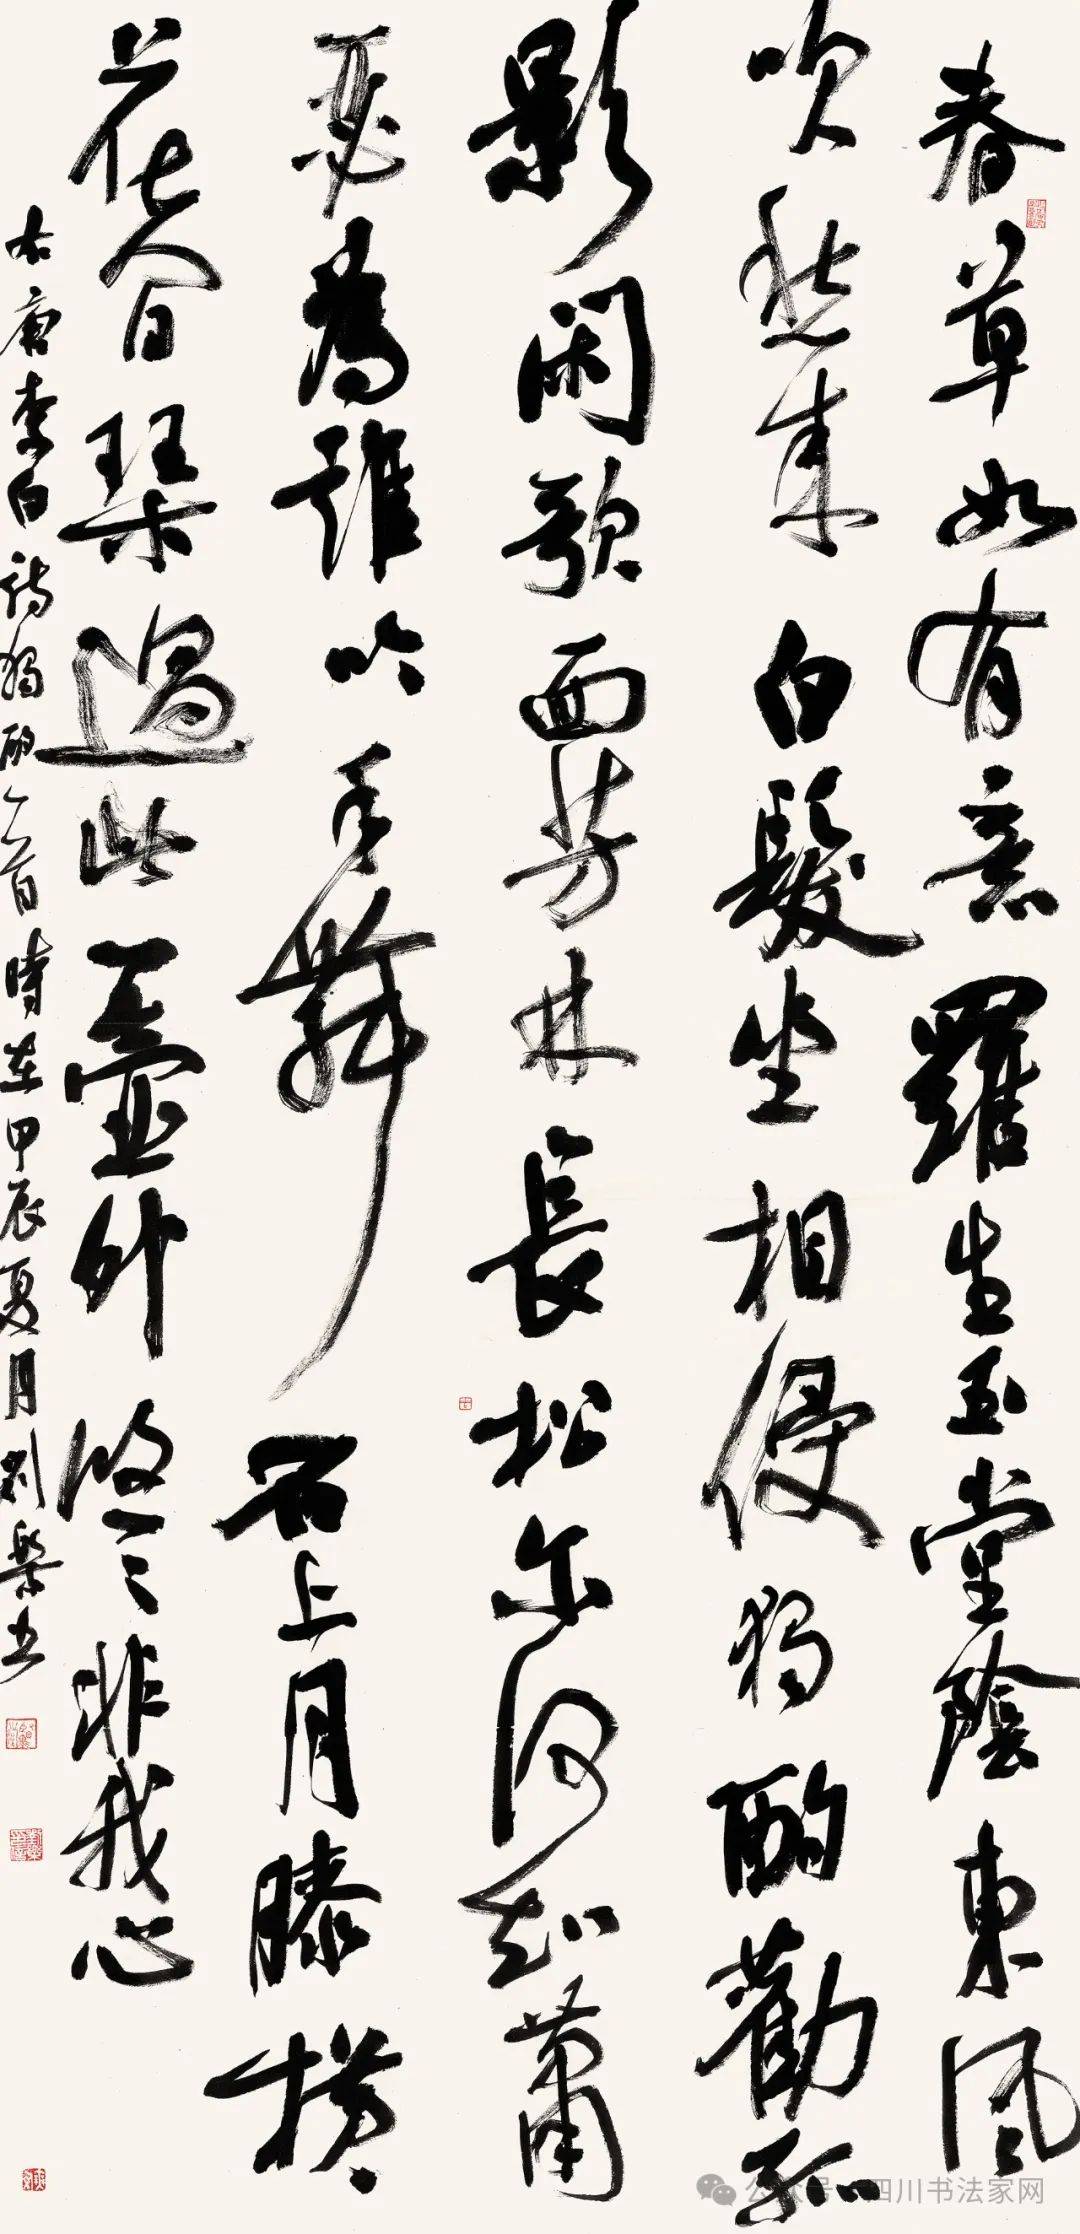 春草如有意羅生玉堂陰東風
吹愁來白髮坐相侵獨酌勸孤
影閑歌面芳林長松尔何知蕭
瑟為誰吟手舞石上月膝橫
花間琴過此壺外悠〻非我心
右唐李白詩獨酌一首時在甲辰夏月劉榮書
公众号·四川书法家网